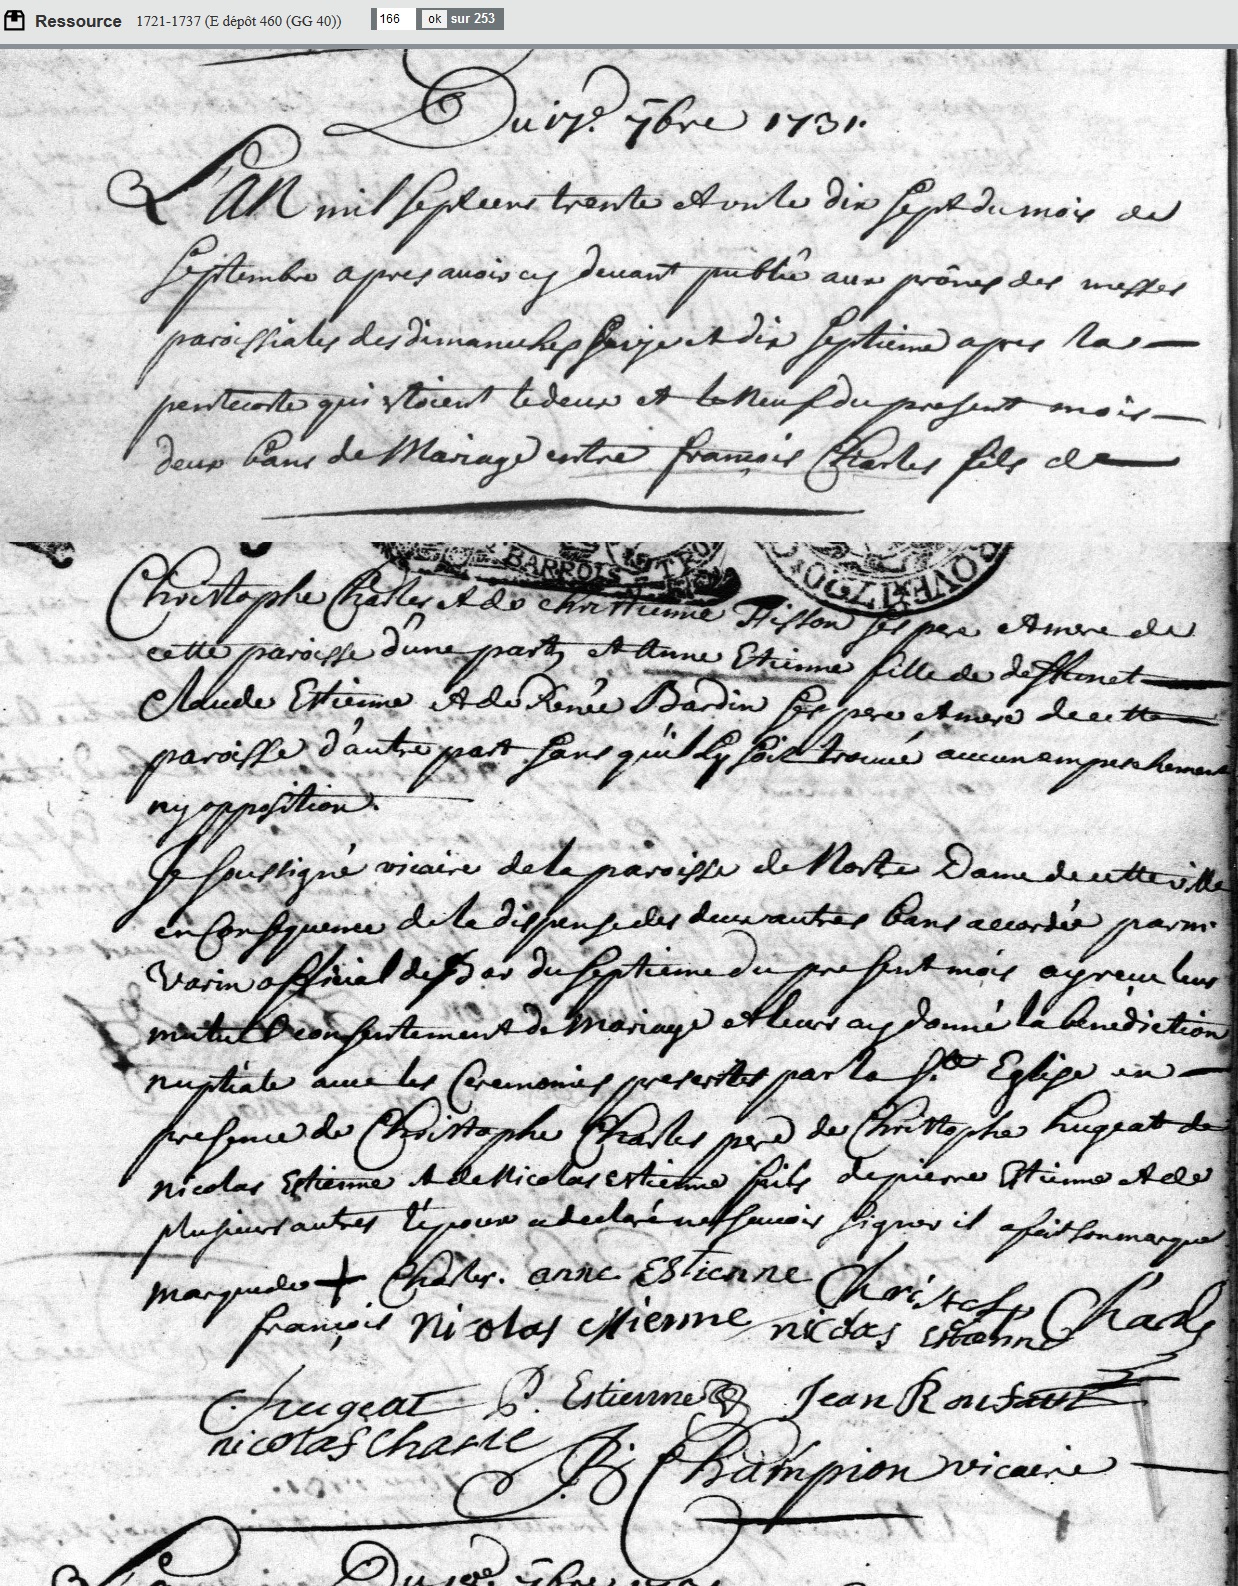 Ressource 1721-1737 (E dépôt 460 (GG 40)) 166 ok sur 253
Du 17e. 7bre 1731.
L'an mil sept cens trente et un le dix sept du mois de
septembre apres avoir cy devant publié aux prônes des messes
paroissiales des dimanches seize et dix septieme apres la
pentecoste qui estoient le deux et le neuf du present mois
deux bans de Mariage entre françois Charles fils de
BARROIS
Christophe Charles et de christienne Hisson ses pere et mere de
cette paroisse d'une part, et Anne Etienne fille de deffunct
Claude Estienne et de Renée Bardin ses pere et mere de cette
paroisse d'autre part sans qu'il sy soit trouvé aucun empeschement
ny opposition.
Je soussigné vicaire de la paroisse de Nostre Dame de cette ville
en Consequence de la dispense des deux autres bans accordée par mr
Varin official de Bar du septieme du present mois ay receu leur
mutuel consentement de Mariage et leurs ay donné la bénédiction
nuptiale avec les Ceremonies prescrites par la Ste Eglise en
presence de Christophe Charles pere de Christophe hugeat de
nicolas Estienne et de Nicolas estienne fils de pierre Estienne et de
plusieurs autres l'epoux a declaré ne sçavoir signer il a fait son marque
marque de + Charles. anne Estienne Christofe Charles
françois nicolas estienne nicolas Estienne
C hugeat P. Estienne Jean
nicolas charle
Champion vicaire
7bre